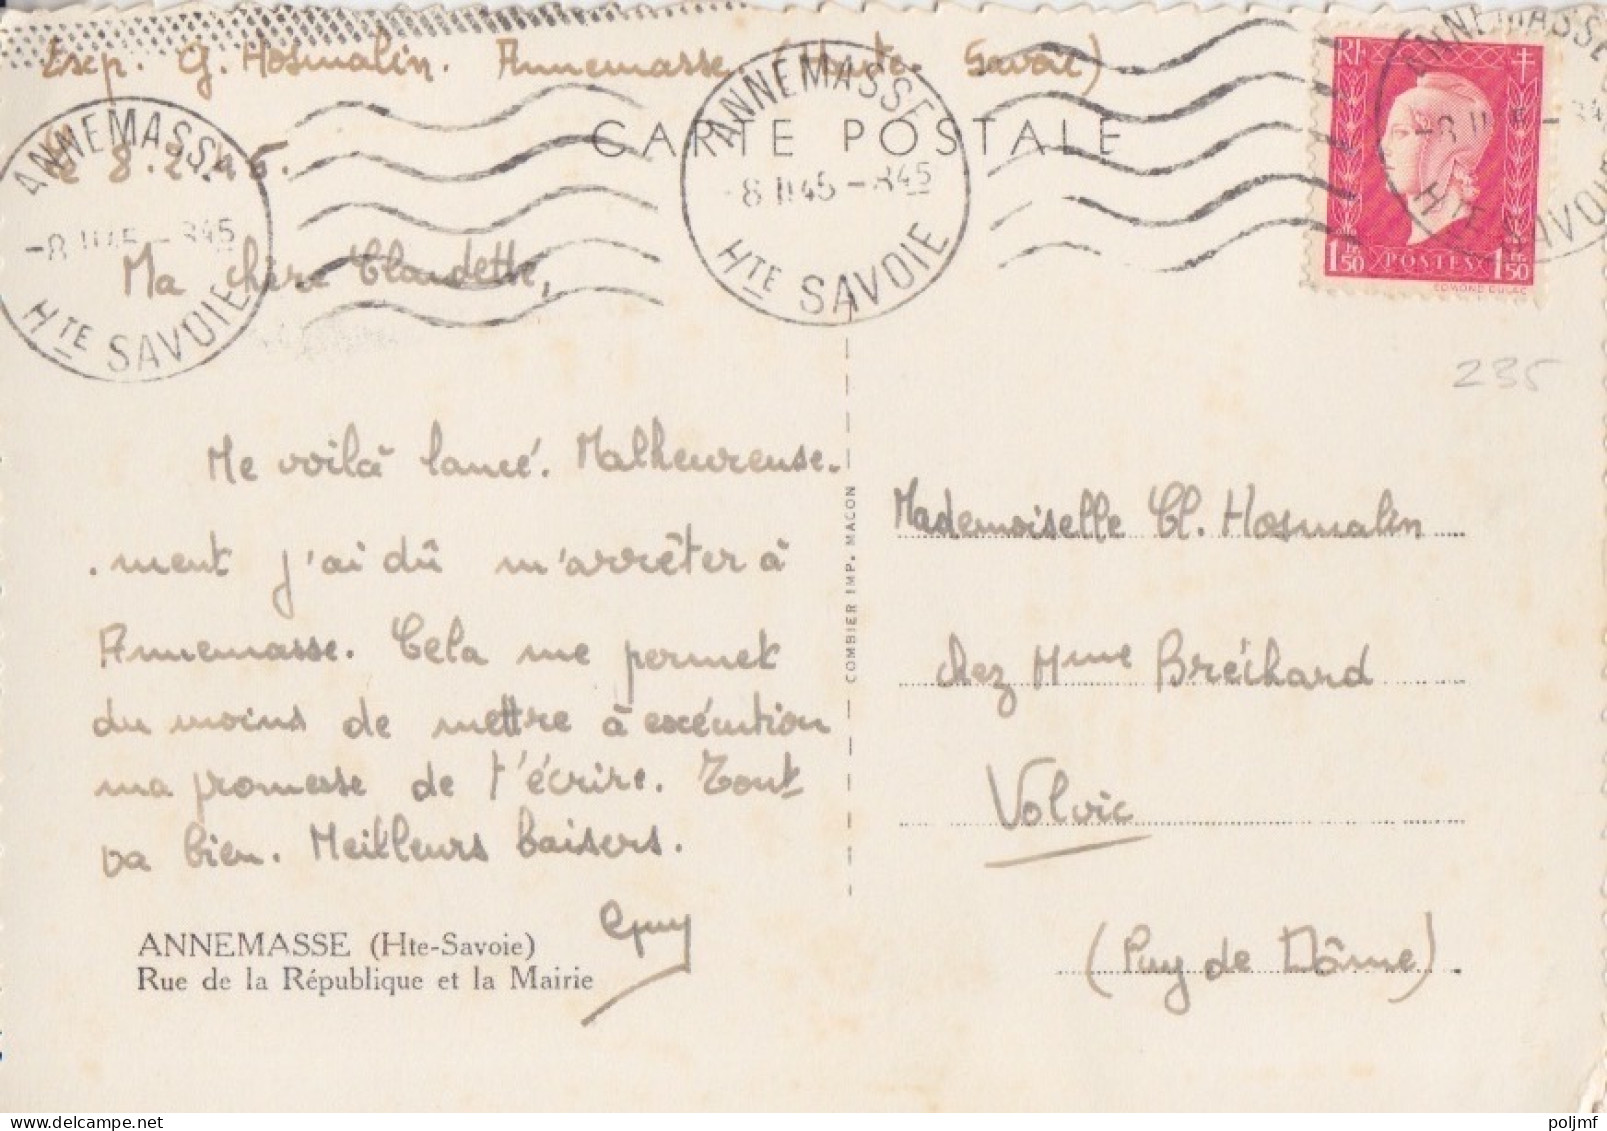 Exp. G. Hosmalin. Annemasse (Haute Savoie)
CARTE POSTALE
ANNEMASSE
-8 II 45 - 845
HTE SAVOIE
ANNEMASSE
-8 II 45 - 845
HTE SAVOIE
ANNEMASSE
-8 II 45 - 845
HTE SAVOIE
RF
1F50 POSTES 1F50
EDMOND DULAC
le 8.2.45.
Ma chère Claudette,
235
Me voilà lancé. Malheureuse-
-ment j'ai dû m'arrêter à
Annemasse. Cela me permet
du moins de mettre à exécution
ma promesse de t'écrire. Tout
va bien. Meilleurs baisers.
Guy
ANNEMASSE (Hte-Savoie)
Rue de la République et la Mairie
COMBIER IMP. MACON
Mademoiselle Cl. Hosmalin
chez Mme Bréchard
Volvic
(Puy de Dôme)
poljmf